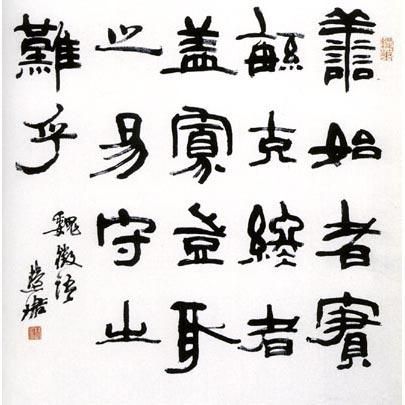 譱始者實
緐克終者
蓋寡豈取
之易守之
難乎
魏徵語